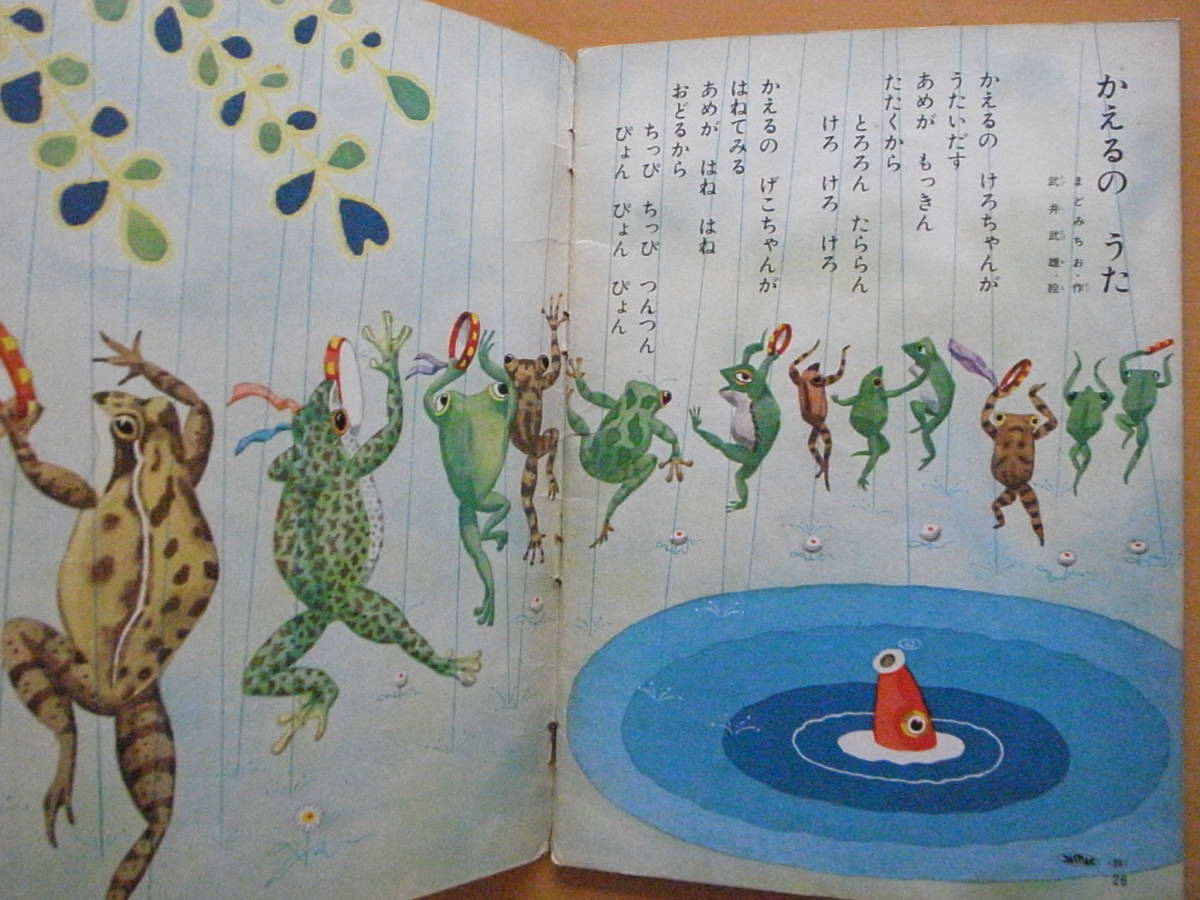 かえるの うた
まどみちお・作
武井武雄・絵
かえるの けろちゃんが
うたいだす
あめが もっきん
たたくから
とろろん たららん
けろ けろ けろ
かえるの げこちゃんが
はねてみる
あめが はね はね
おどるから
ちっぴ ちっぴ つんつん
ぴょん ぴょん ぴょん
26